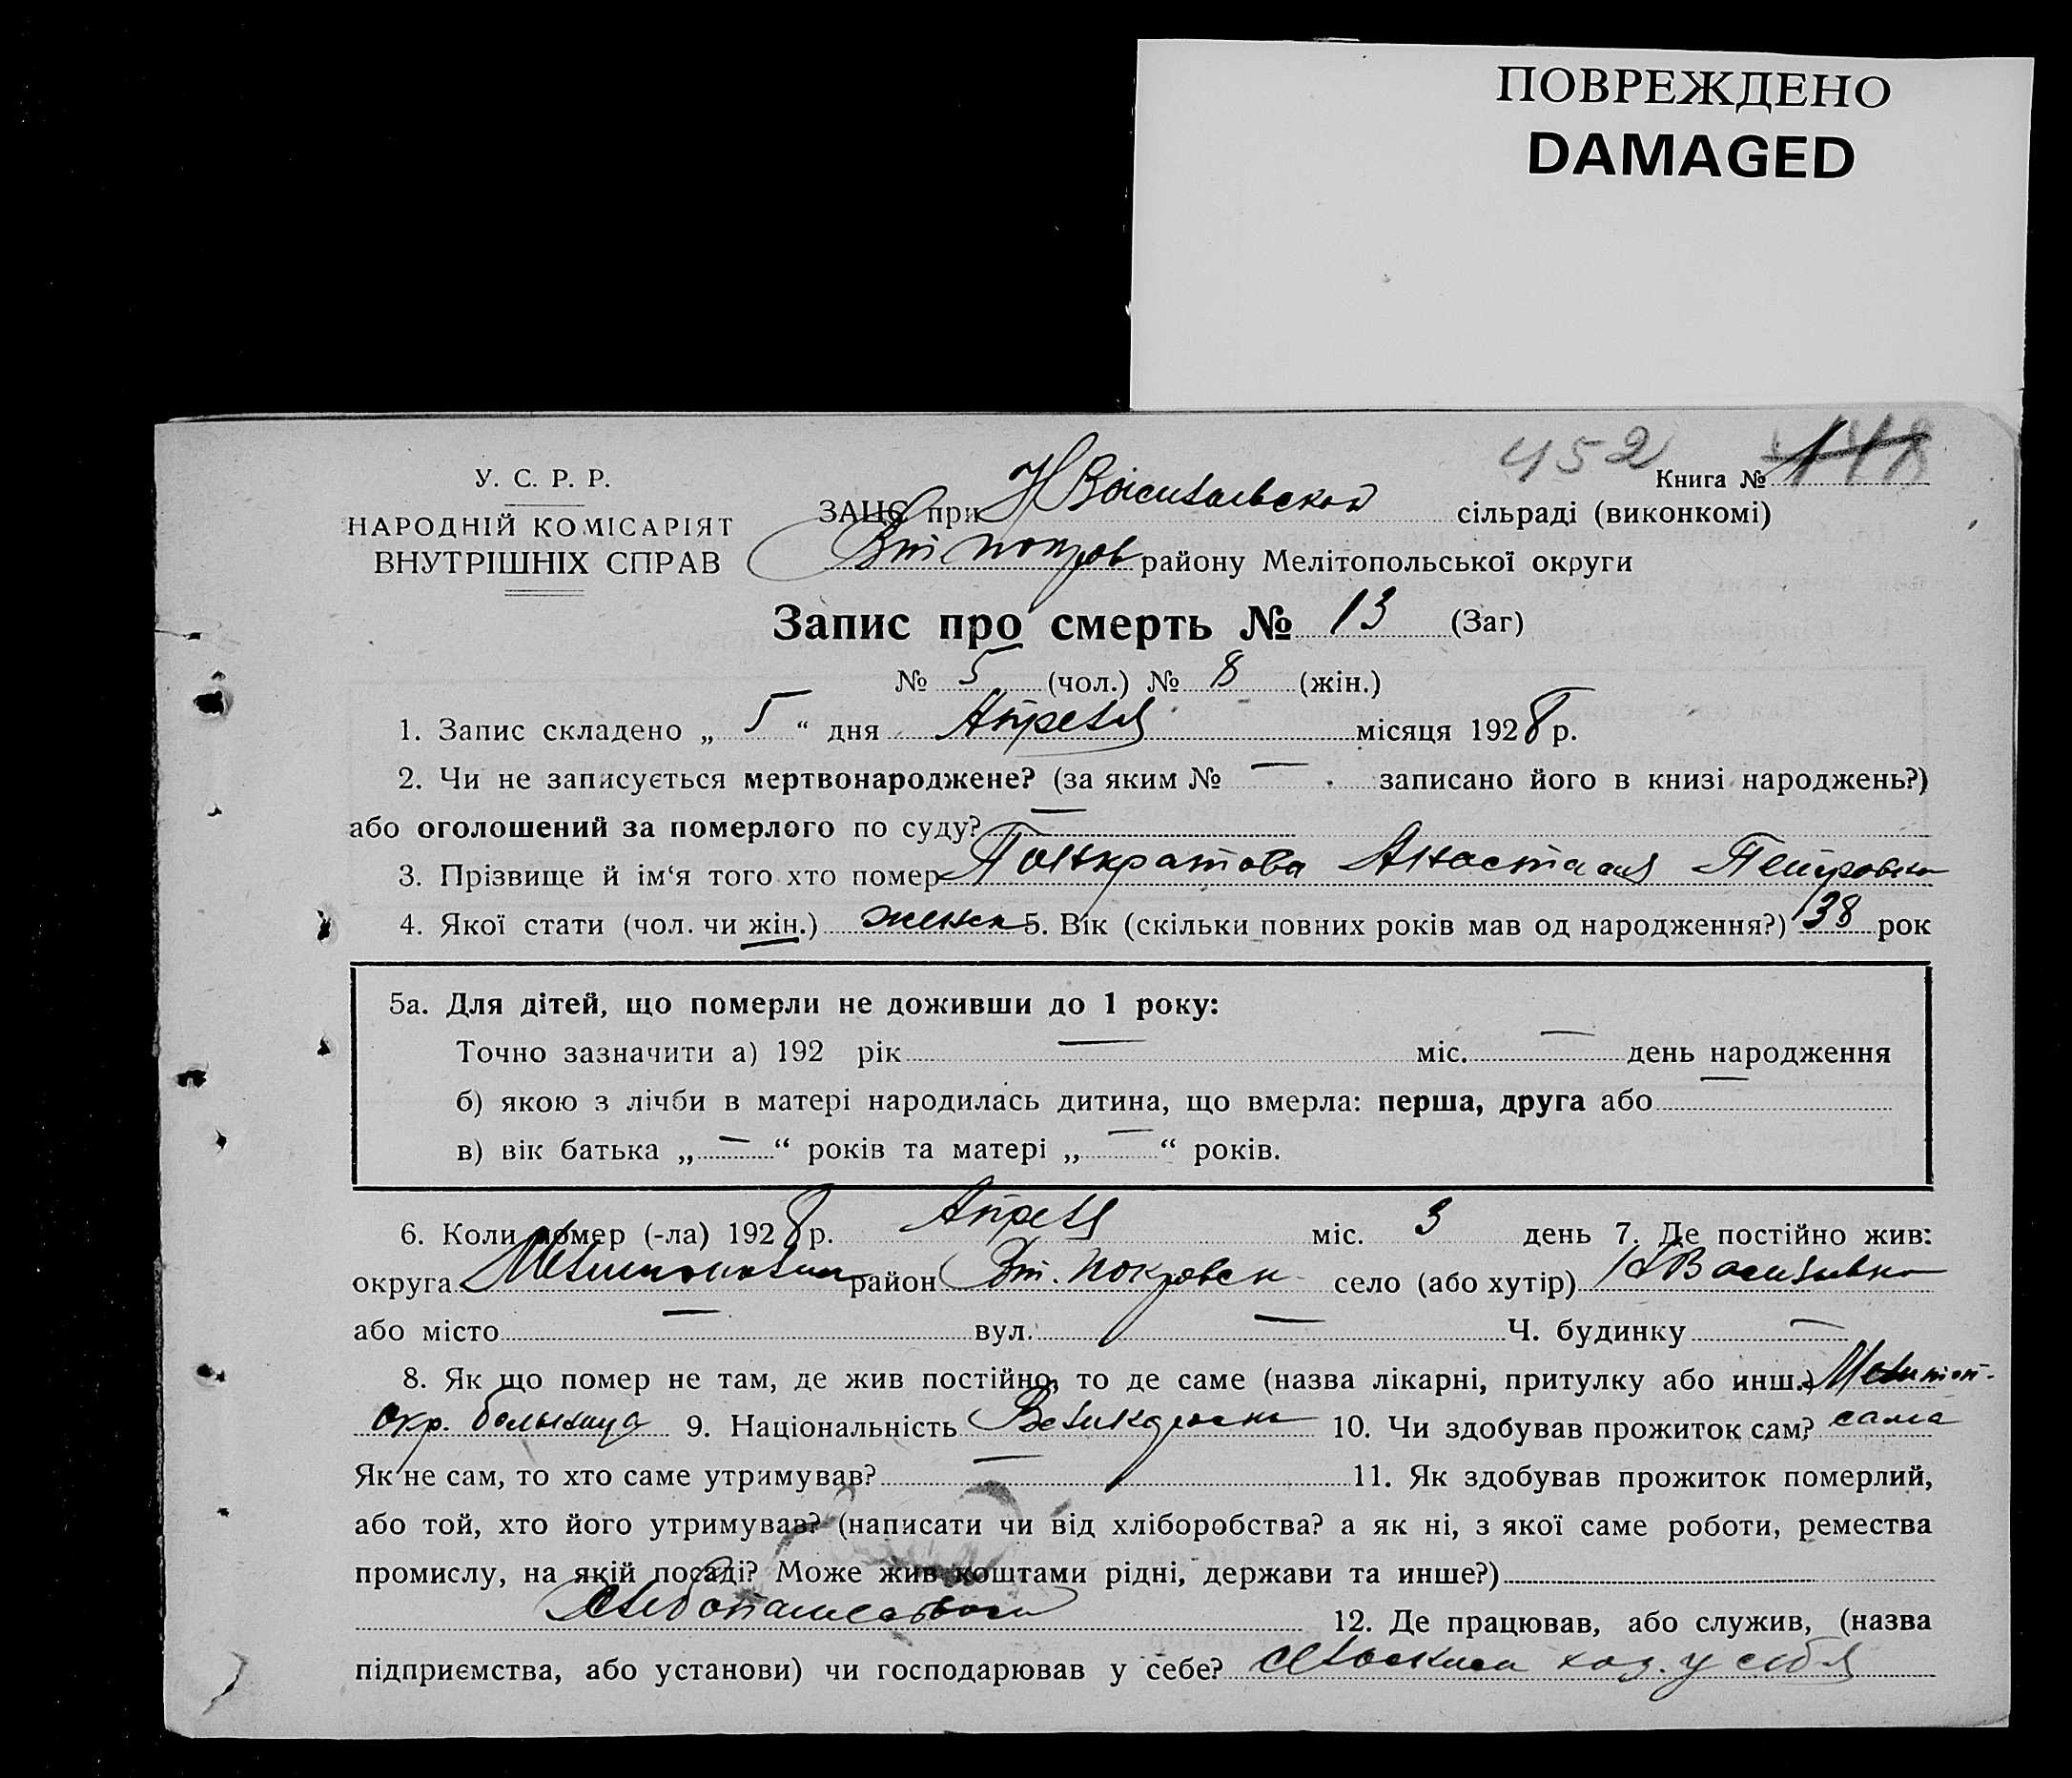 ПОВРЕЖДЕНО
DAMAGED
452
У. С. Р. Р.
Книга №
НАРОДНІЙ КОМІСАРІЯТ
ВНУТРІШНІХ СПРАВ
ЗАЦС при Н Васильевской сільраді (виконкомі)
Вт покров району Мелітопольської округи
Запис про смерть № 13 (Заг)
№ 5 (чол.) № 8 (жін.)
1. Запис складено „ 5 “ дня Апреля місяця 1928 р.
2. Чи не записується мертвонароджене? (за яким № — записано його в книзі народжень?)
або оголошений за померлого по суду? —
3. Прізвище й ім‘я того хто помер Панкратова Анастасия Петровна
4. Якої стати (чол. чи жін.) женск 5. Вік (скільки повних років мав од народження?) 38 рок
5а. Для дітей, що померли не доживши до 1 року:
Точно зазначити а) 192 рік — міс. — день народження
б) якою з лічби в матері народилась дитина, що вмерла: перша, друга або —
в) вік батька „ — “ років та матері „ — “ років.
6. Коли помер (-ла) 1928 р. Апреля міс. 3 день 7. Де постійно жив:
округа район Вт. Покровск село (або хутір) Н Васильевка
або місто — вул. — Ч. будинку —
8. Як що помер не там, де жив постійно, то де саме (назва лікарні, притулку або инш.) Мелитоп.
окр. больница 9. Національність 10. Чи здобував прожиток сам? сама
Як не сам, то хто саме утримував? — 11. Як здобував прожиток померлий,
або той, хто його утримував? (написати чи від хліборобства? а як ні, з якої саме роботи, ремества
промислу, на якій посаді? Може жив коштами рідні, держави та инше?)
хлебопашеством 12. Де працював, або служив, (назва
підприємства, або установи) чи господарював у себе? хоз. у себя